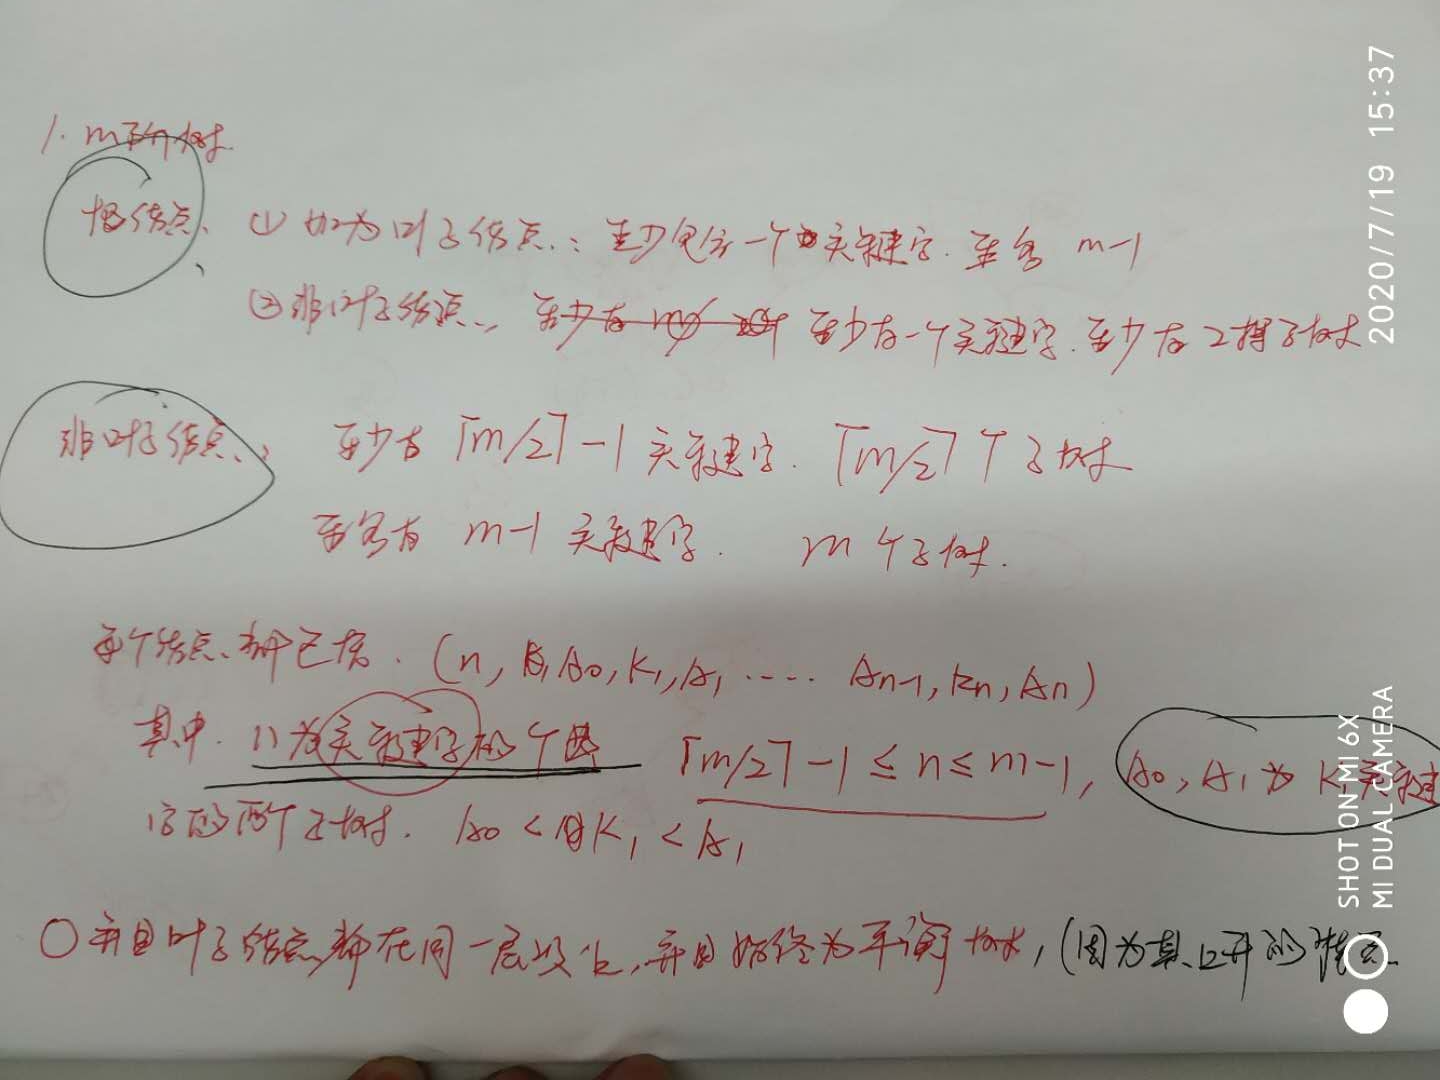 1. m阶树.
根结点. ① 如为叶子结点: 至少包含一个关键字. 至多 m-1
② 非叶子结点, 至少有一个关键字. 至少有2棵子树
非叶子结点、: 至少有 ⌈m/2⌉-1 关键字. ⌈m/2⌉个子树
至多有 m-1 关键字. m个子树.
每个结点都包括. (n, A0, K1, A1 ····· An-1, Kn, An)
其中. n为关键字的个数 ⌈m/2⌉-1 ≤ n ≤ m-1, A0, A1 为 K1关键
字的两个子树. A0 < K1 < A1
○ 并且叶子结点都在同一层次上, 并且始终为平衡树, (因为其上升的
2020/7/19 15:37
SHOT ON MI 6X
MI DUAL CAMERA